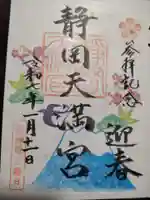 参拝記念
迎春
静岡天満宮
令和七年一月十一日